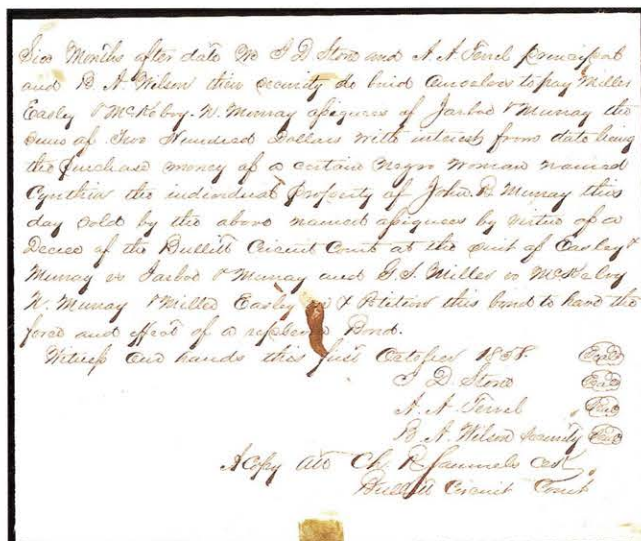 Six Months after date We S D Stone and A. A. Terrel principal
and B. A. Wilson their security do bind ourselves to pay Miller
Easley & McKelvy. W. Murray assignees of Jarboe & Murray the
sum of Two Hundred Dollars with interest from date being
the purchase money of a certain Negro Woman named
Cynthia the individual property of John. B Murray this
day sold by the above named assignees by virtue of a
Decree of the Bullitt Circuit Court at the suit of Easley &
Murray vs Jarboe & Murray and G. S. Miller vs McKelvy
W. Murray & Miller Easley & Petition this bond to have the
force and effect of a replevin Bond.
Witness our hands this first October 1858.
S D. Stone Seal
A. A. Terrel Seal
B. A. Wilson security Seal
A Copy att Ch. R Samuels
Bullitt Circuit Court